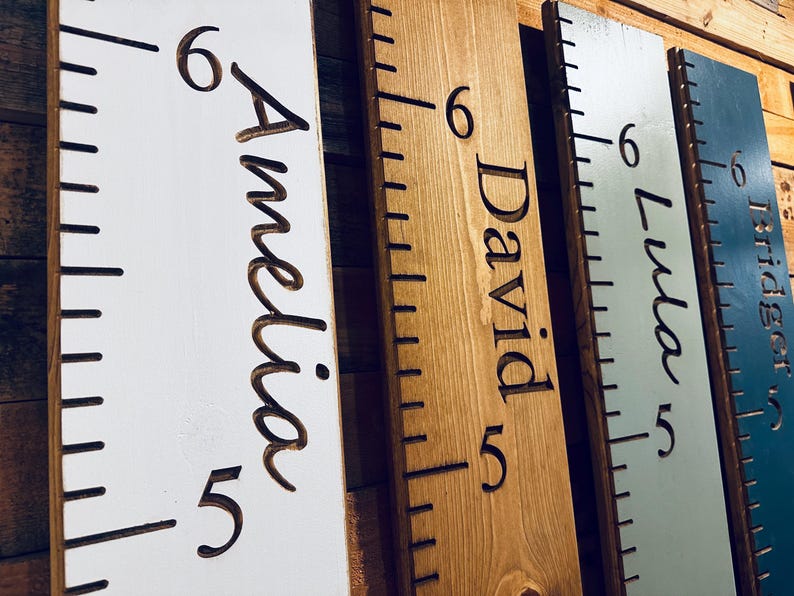 6
Amelia
5
6
David
5
6
Lula
5
6
Bridger
5